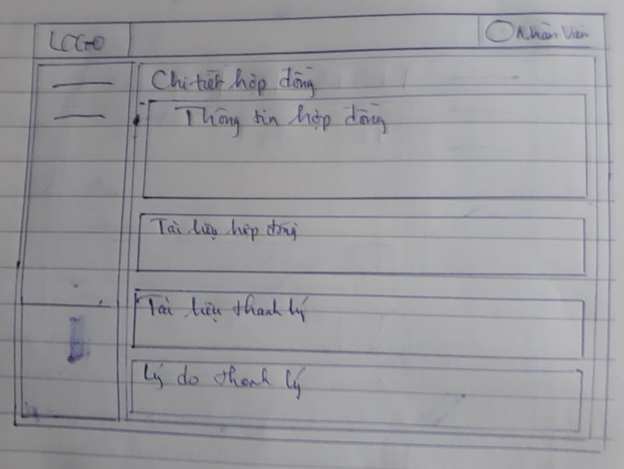 LOGO
Nhân Viên
Chi tiết hợp đồng
Thông tin hợp đồng
Tài liệu hợp đồng
Tài liệu thanh lý
Lý do thanh lý